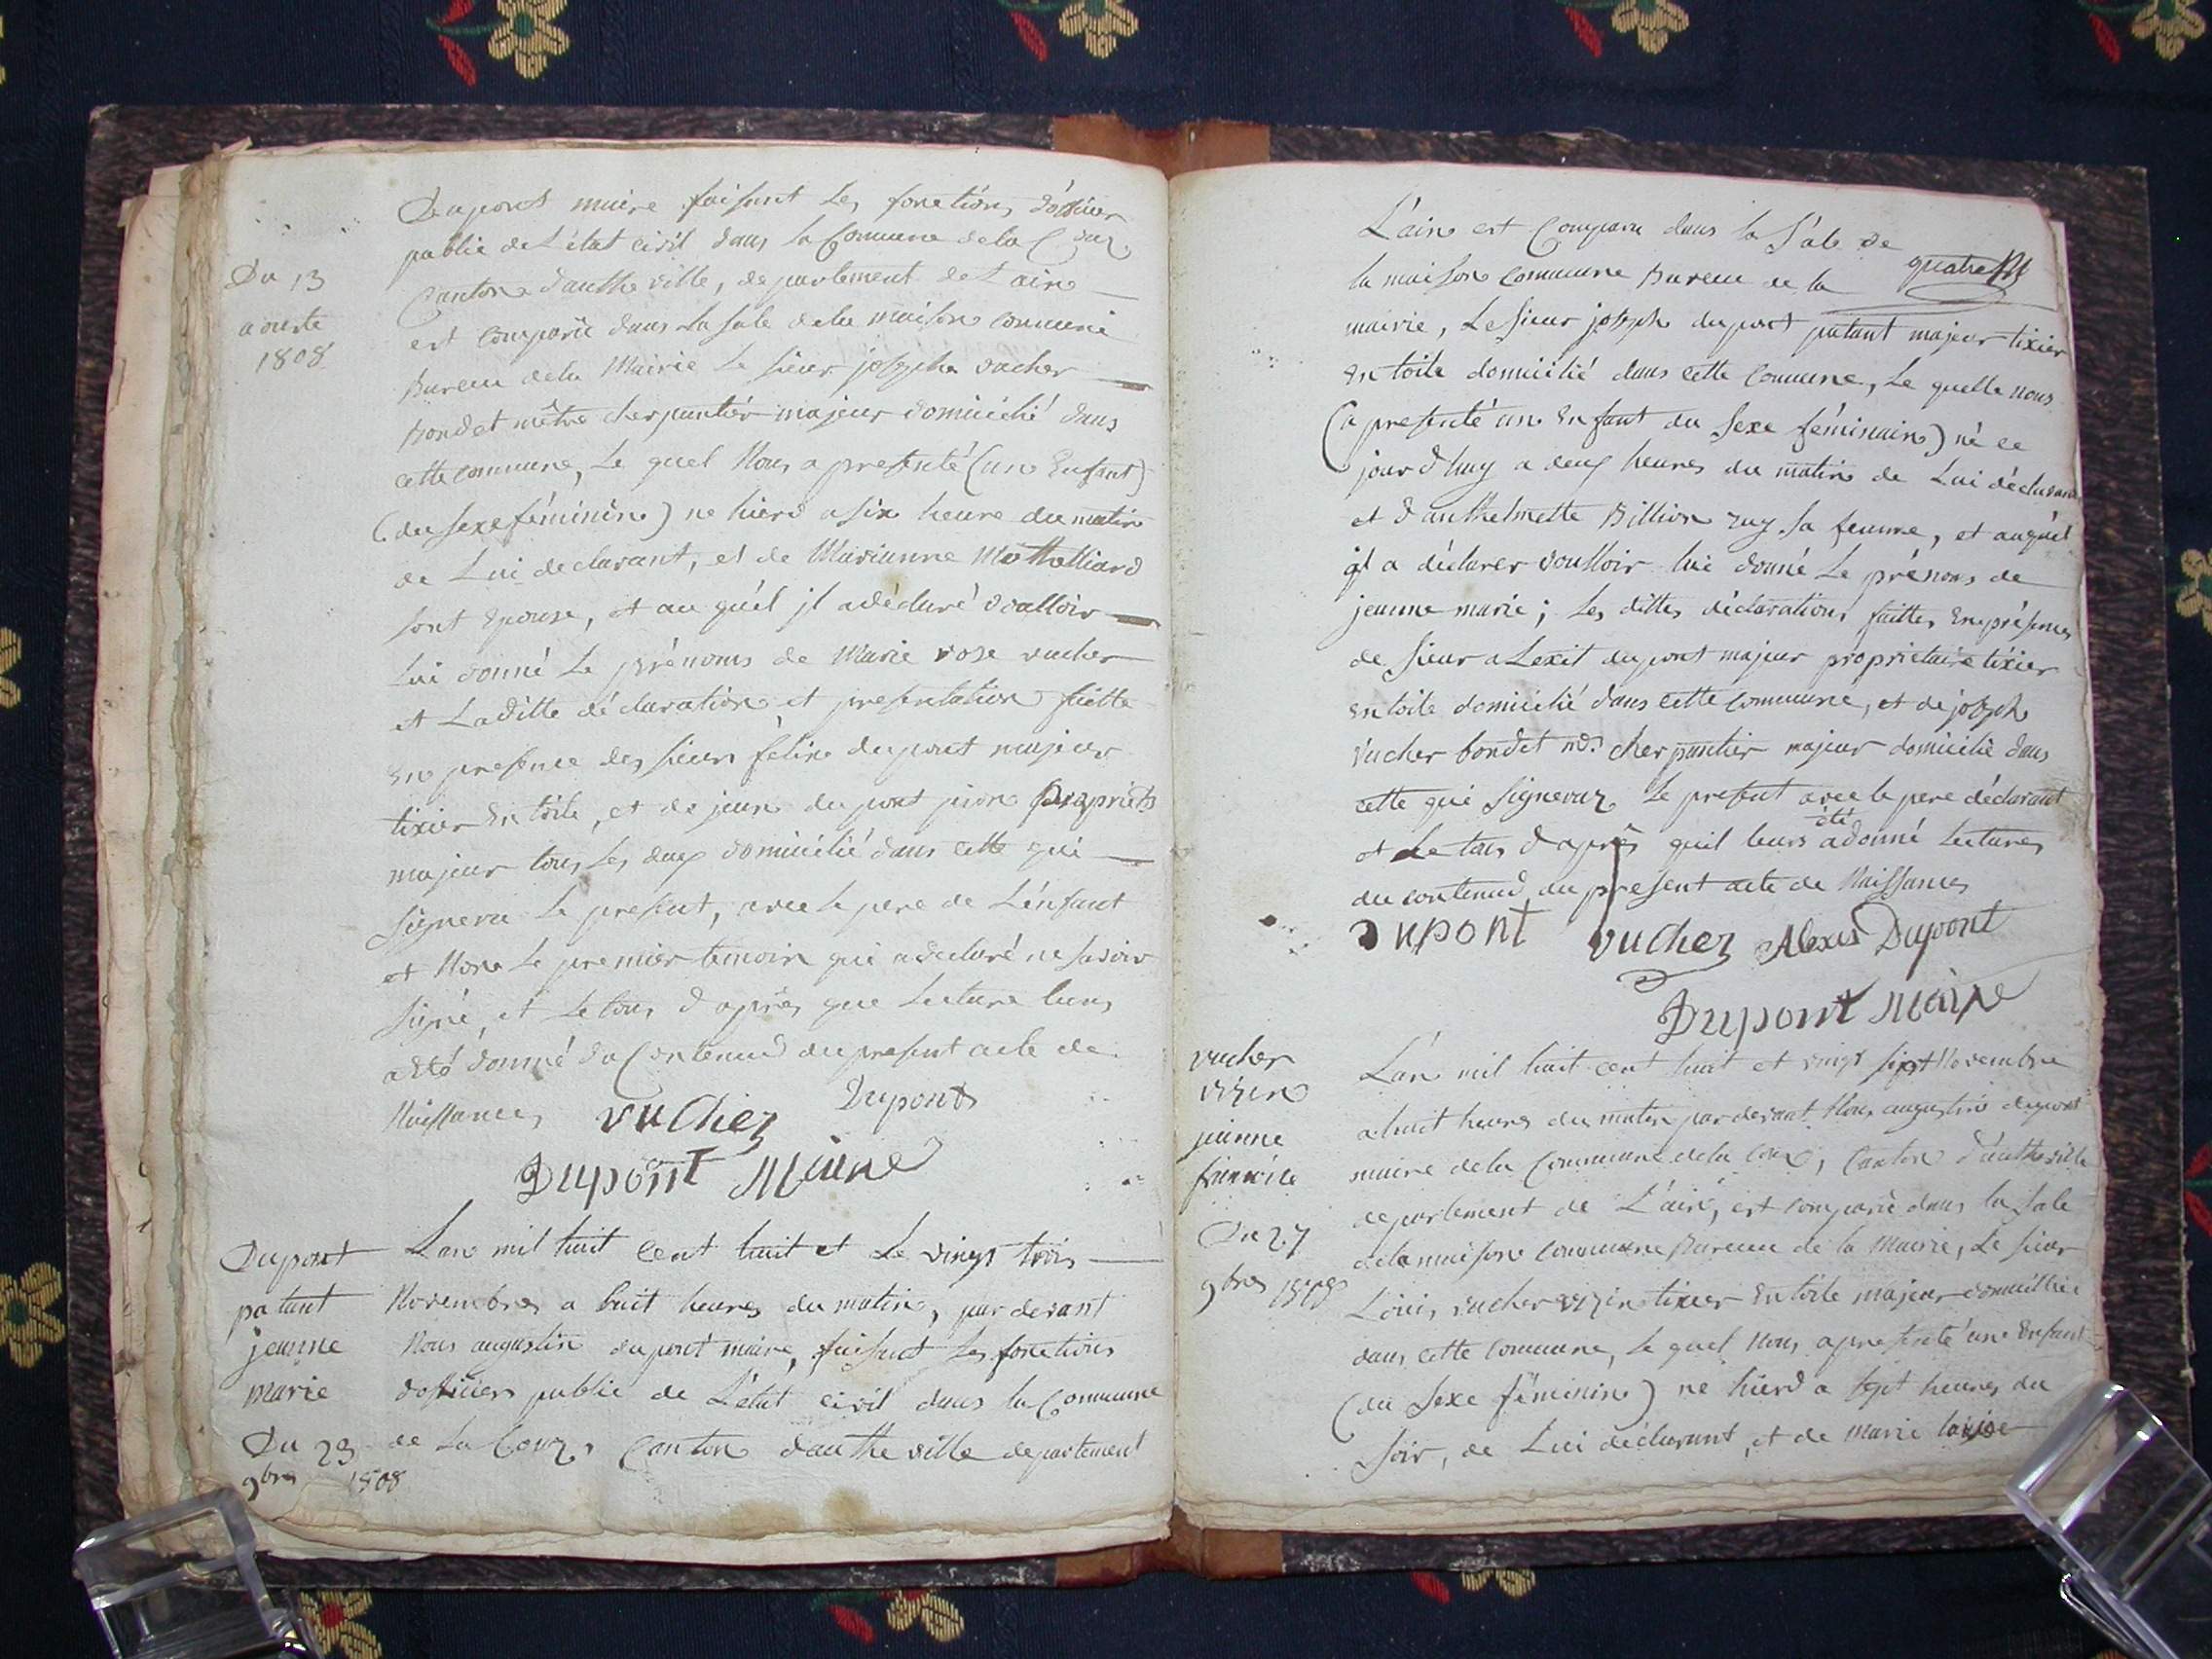 Dupont maire faisant les fonctions d'officier
public de L'état civil dans la Commune de la Couz
Du 13
aouste
1808
Canton d'authe ville, departement de L'ain
est comparü dans la sale de la maison commune
Bureau de la Mairie le sieur joseph vucher
Bondet mêtre cherpantier majeur domicilié dans
cette commune, Le quel Nous a presenté (un Enfant)
(du sexe féminin) ne hierd a six heure du matin
de Lui declarant, et de Marianne
sont Epouse, et au quél jl a déclaré voulloir
Lui donné Le prénoms de Marie rose vucher
et Laditte déclaration et presentation faitte
En presence des sieurs feline dupont majeur
tixier En toile, et de jean dupont pion
majeur tous les deux domicilié dans cette qui
signera Le present, avec le pere de L'énfant
et Non Le premier temoin qui a declaré ne savoir
signé, et Le tous d'après que Lecture leurs
a Eté donné du Contenud du present acte de
Naissances vucher Dupont
Dupont Maire
Dupont
patant
jeanne
marie
Du 23
9bres 1808
L'an mil huit cent huit et Le vingt trois
Novembres a huit heures du matin, par devant
Nous augustin dupont maire, faisant les fonctions
d'officier public de L'état civil dans la Commune
de La Couz, Canton d'authe ville departement
L'ain est Comparu dans la Sale de
quatre
la maison commune Bureau de la
mairie, Le sieur joseph dupont patant majeur tixier
En toile domicilié dans cette commune, Le quelle nous
(a presenté un Enfant du sexe féminain) né ce
jour d'huy a deux heures du matin de Lui déclarant
et d'anthelmette Billion rey sa femme, et auquél
jl a déclarer voulloir lui donné Le prénoms de
jeanne marie; Les dittes déclarations faittes En présences
de sieur aLexit dupont majeur proprietaire tixier
En toile domicilié dans cette commune, et de joseph
vucher bondet md. cherpantier majeur domicilié dans
cette qui signeront Le present avec le pere déclarant
et Le tous d'aprês quil leurs a été donné Lectures
du contenud du present acte de Naissances
Dupont vucher Alexis Dupont
Dupont Maire
vucher
vizin
jeanne
francise
Du 27
9bres 1808
L'an mil huit cent huit et vingt sept Novembre
a huit heures du matin par devant Nous augustin dupont
maire de la Commune de la Couz, Canton d'authe ville
departement de L'ain, est comparü dans la sale
de la maison commune Bureau de la Mairie, Le sieur
Loüis vucher vizin tixier En toile majeur domicillié
dans cette commune, Le quel Nous a presenté un Enfant
(du sexe féminin) ne hierd a sept heures du
soir, de Lui déclarant, et de marie louise